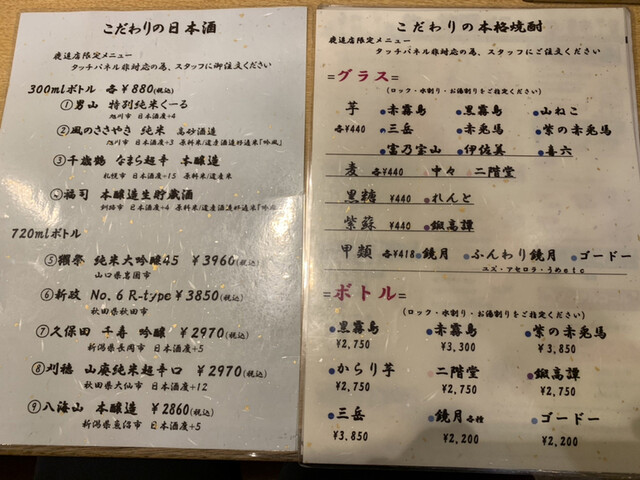 こだわりの日本酒
鹿追店限定メニュー
タッチパネル非対応の為、スタッフに御注文ください
300mlボトル 各¥880(税込)
①男山 特別純米くーる
旭川市 日本酒度+4
②風のささやき 純米 高砂酒造
旭川市 日本酒度+3 原料米/道産酒造好適米「吟風」
③千歳鶴 なまら超辛 本醸造
札幌市 日本酒度+15 原料米/道産米
④福司 本醸造生貯蔵酒
釧路市 日本酒度+4 原料米/道産酒造好適米「吟風
720mlボトル
⑤獺祭 純米大吟醸45 ¥3960(税込)
山口県岩国市
⑥新政 No.6 R-type ¥3850(税込)
秋田県秋田市
⑦久保田 千寿 吟醸 ¥2970(税込)
新潟県長岡市 日本酒度+5
⑧刈穂 山廃純米超辛口 ¥2970(税込)
秋田県大仙市 日本酒度+12
⑨八海山 本醸造 ¥2860(税込)
新潟県魚沼市 日本酒度+5
こだわりの本格焼酎
鹿追店限定メニュー
タッチパネル非対応の為、スタッフにご注文ください
=グラス=
(ロック・水割り・お湯割りをご指定ください)
芋 ●赤霧島 ●黒霧島 ●山ねこ
各¥440 ●三岳 ●赤兎馬 ●紫の赤兎馬
●富乃宝山 ●伊佐美 ●喜六
麦 各¥440 ●中々 ●二階堂
黒糖 ¥440 ●れんと
紫蘇 ¥440 ●鍛高譚
甲類 各¥418 ●鏡月 ●ふんわり鏡月 ●ゴードー
ユズ・アセロラ・うめetc
=ボトル=
(ロック・水割り・お湯割りをご指定ください)
●黒霧島 ●赤霧島 ●紫の赤兎馬
¥2,750 ¥3,300 ¥3,850
●からり芋 ●二階堂 ●鍛高譚
¥2,750 ¥2,750 ¥2,750
●三岳 ●鏡月各種 ●ゴードー
¥3,850 ¥2,200 ¥2,200